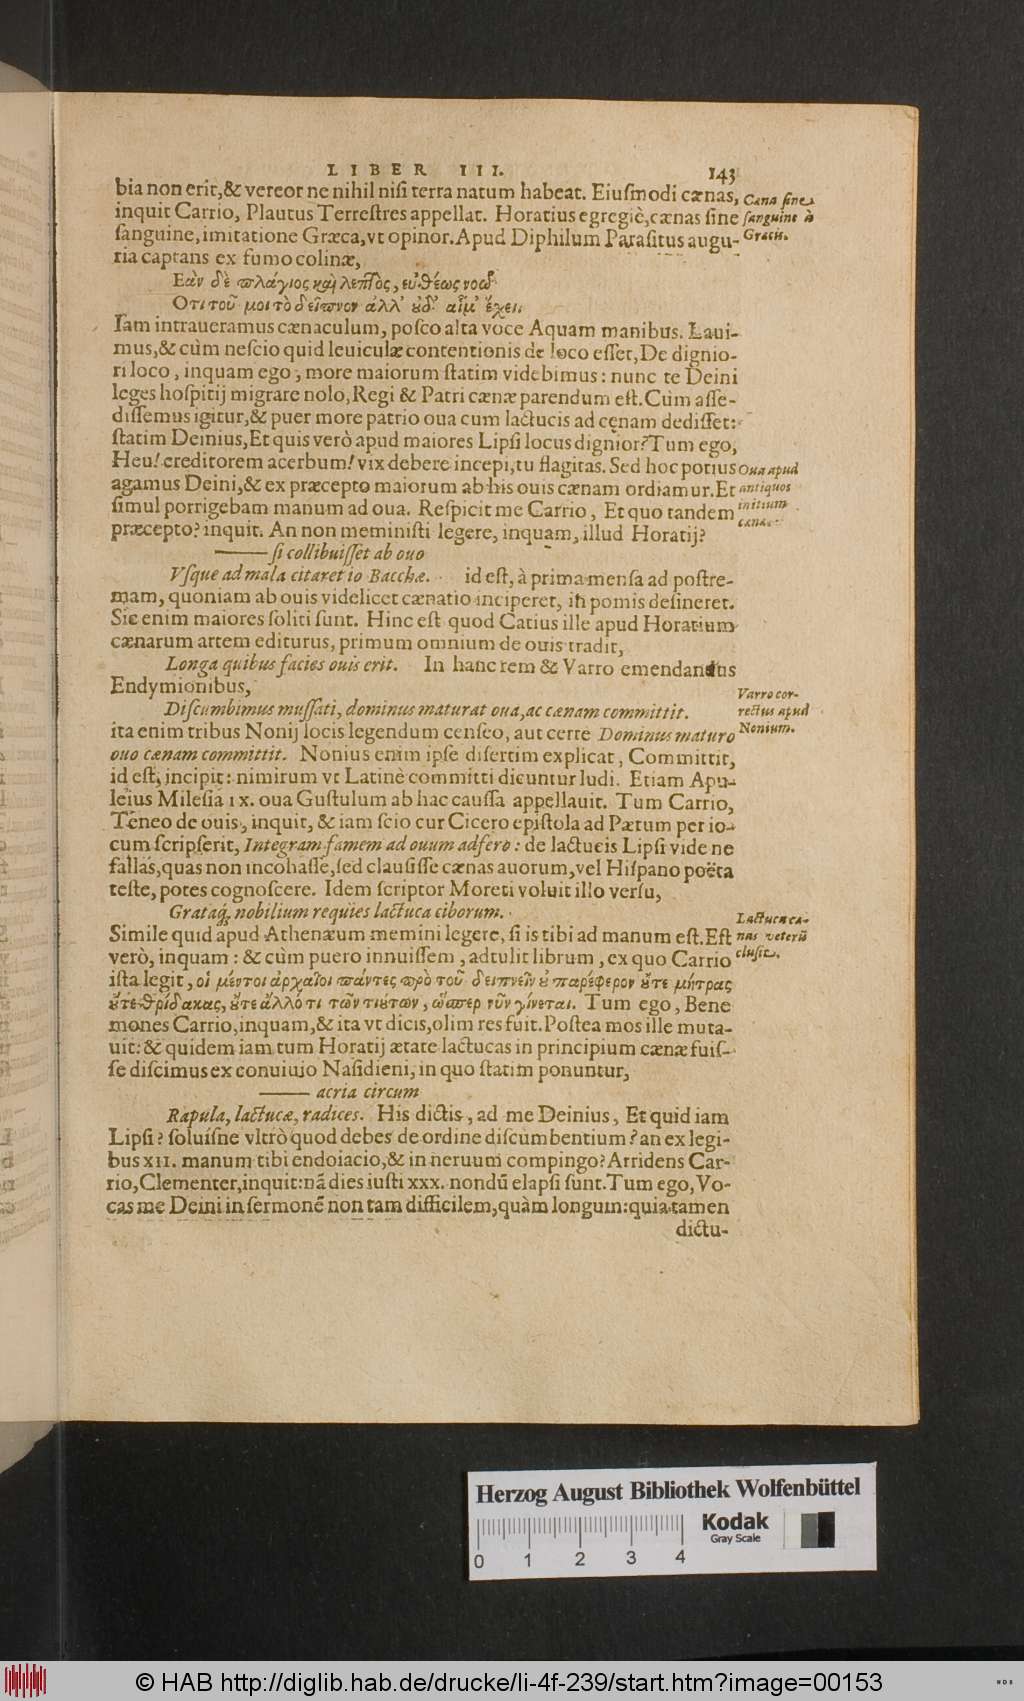 LIBER III. 143
bia non erit,& vereor ne nihil nisi terra natum habeat. Eiusmodi cænas,
inquit Carrio, Plautus Terrestres appellat. Horatius egregiè,cænas sine
sanguine,imitatione Græca,vt opinor.Apud Diphilum Parasitus augu-
ria captans ex fumo colinæ,
Cæna sine
sanguine à
Græcis.
Εὰν δὲ πλάγιος καὶ λεπτὸς, εὐθέως νοῶ
Οτι τοῦ μοι τὸ δεῖπνον ἀλλ' ȣδ' αἷμ' ἔχει.
Iam intraueramus cænaculum, posco alta voce Aquam manibus. Laui-
mus,& cùm nescio quid leuiculæ contentionis de loco esset,De dignio-
ri loco, inquam ego, more maiorum statim videbimus: nunc te Deini
leges hospitij migrare nolo,Regi & Patri cænæ parendum est.Cùm asse-
dissemus igitur,& puer more patrio oua cum lactucis ad cęnam dedisset:
statim Deinius,Et quis verò apud maiores Lipsi locus dignior?Tum ego,
Heu! creditorem acerbum! vix debere incepi,tu flagitas. Sed hoc potius
agamus Deini,& ex præcepto maiorum ab his ouis cænam ordiamur.Et
simul porrigebam manum ad oua. Respicit me Carrio, Et quo tandem
præcepto? inquit. An non meministi legere, inquam, illud Horatij?
Oua apud
antiquos
initium
cænæ.
—— si collibuisset ab ouo
Vsque ad mala citaret io Bacchæ. id est, à prima mensa ad postre-
mam, quoniam ab ouis videlicet cænatio inciperet, iñ pomis desineret.
Sic enim maiores soliti sunt. Hinc est quod Catius ille apud Horatium
cænarum artem editurus, primum omnium de ouis tradit,
Longa quibus facies ouis erit. In hanc rem & Varro emendandus
Endymionibus,
Discumbimus mussati, dominus maturat oua,ac cænam committit.
ita enim tribus Nonij locis legendum censeo, aut certè Dominus maturo
ouo cænam committit. Nonius enim ipse disertim explicat, Committit,
id est, incipit: nimirum vt Latinè committi dicuntur ludi. Etiam Apu-
leius Milesia IX. oua Gustulum ab hac caussa appellauit. Tum Carrio,
Varro cor-
rectus apud
Nonium.
Teneo de ouis, inquit, & iam scio cur Cicero epistola ad Pætum per io-
cum scripserit, Integram famem ad ouum adfero: de lactucis Lipsi vide ne
fallas,quas non incohasse,sed clausisse cænas auorum,vel Hispano poëta
teste, potes cognoscere. Idem scriptor Moreti voluit illo versu,
Grataq́; nobilium requies lactuca ciborum.
Simile quid apud Athenæum memini legere, si is tibi ad manum est.Est
verò, inquam: & cùm puero innuissem, adtulit librum, ex quo Carrio
Lactuca cæ-
nas veterū
clusit.
ista legit, οἱ μέντοι ἀρχαῖοι πάντες πρὸ τοῦ δειπνεῖν ȣ παρέφερον ȣ̓́τε μήτρας
ȣ̓́τε θρίδακας, ȣ̓́τε ἄλλό τι τῶν τιȣ́των, ὥσπερ νῦν γίνεται. Tum ego, Bene
mones Carrio,inquam,& ita vt dicis,olim res fuit.Postea mos ille muta-
uit: & quidem iam tum Horatij ætate lactucas in principium cænæ fuis-
se discimus ex conuiuio Nasidieni, in quo statim ponuntur,
—— acria circum
Rapula, lactucæ, radices. His dictis, ad me Deinius, Et quid iam
Lipsi? soluisne vltrò quod debes de ordine discumbentium? an ex legi-
bus XII. manum tibi endoiacio,& in neruum compingo? Arridens Car-
rio,Clementer,inquit:nā dies iusti XXX. nondū elapsi sunt.Tum ego,Vo-
cas me Deini in sermonē non tam difficilem,quàm longum:quia tamen
dictu-
Herzog August Bibliothek Wolfenbüttel
Kodak
Gray Scale
0 1 2 3 4
© HAB http://diglib.hab.de/drucke/li-4f-239/start.htm?image=00153